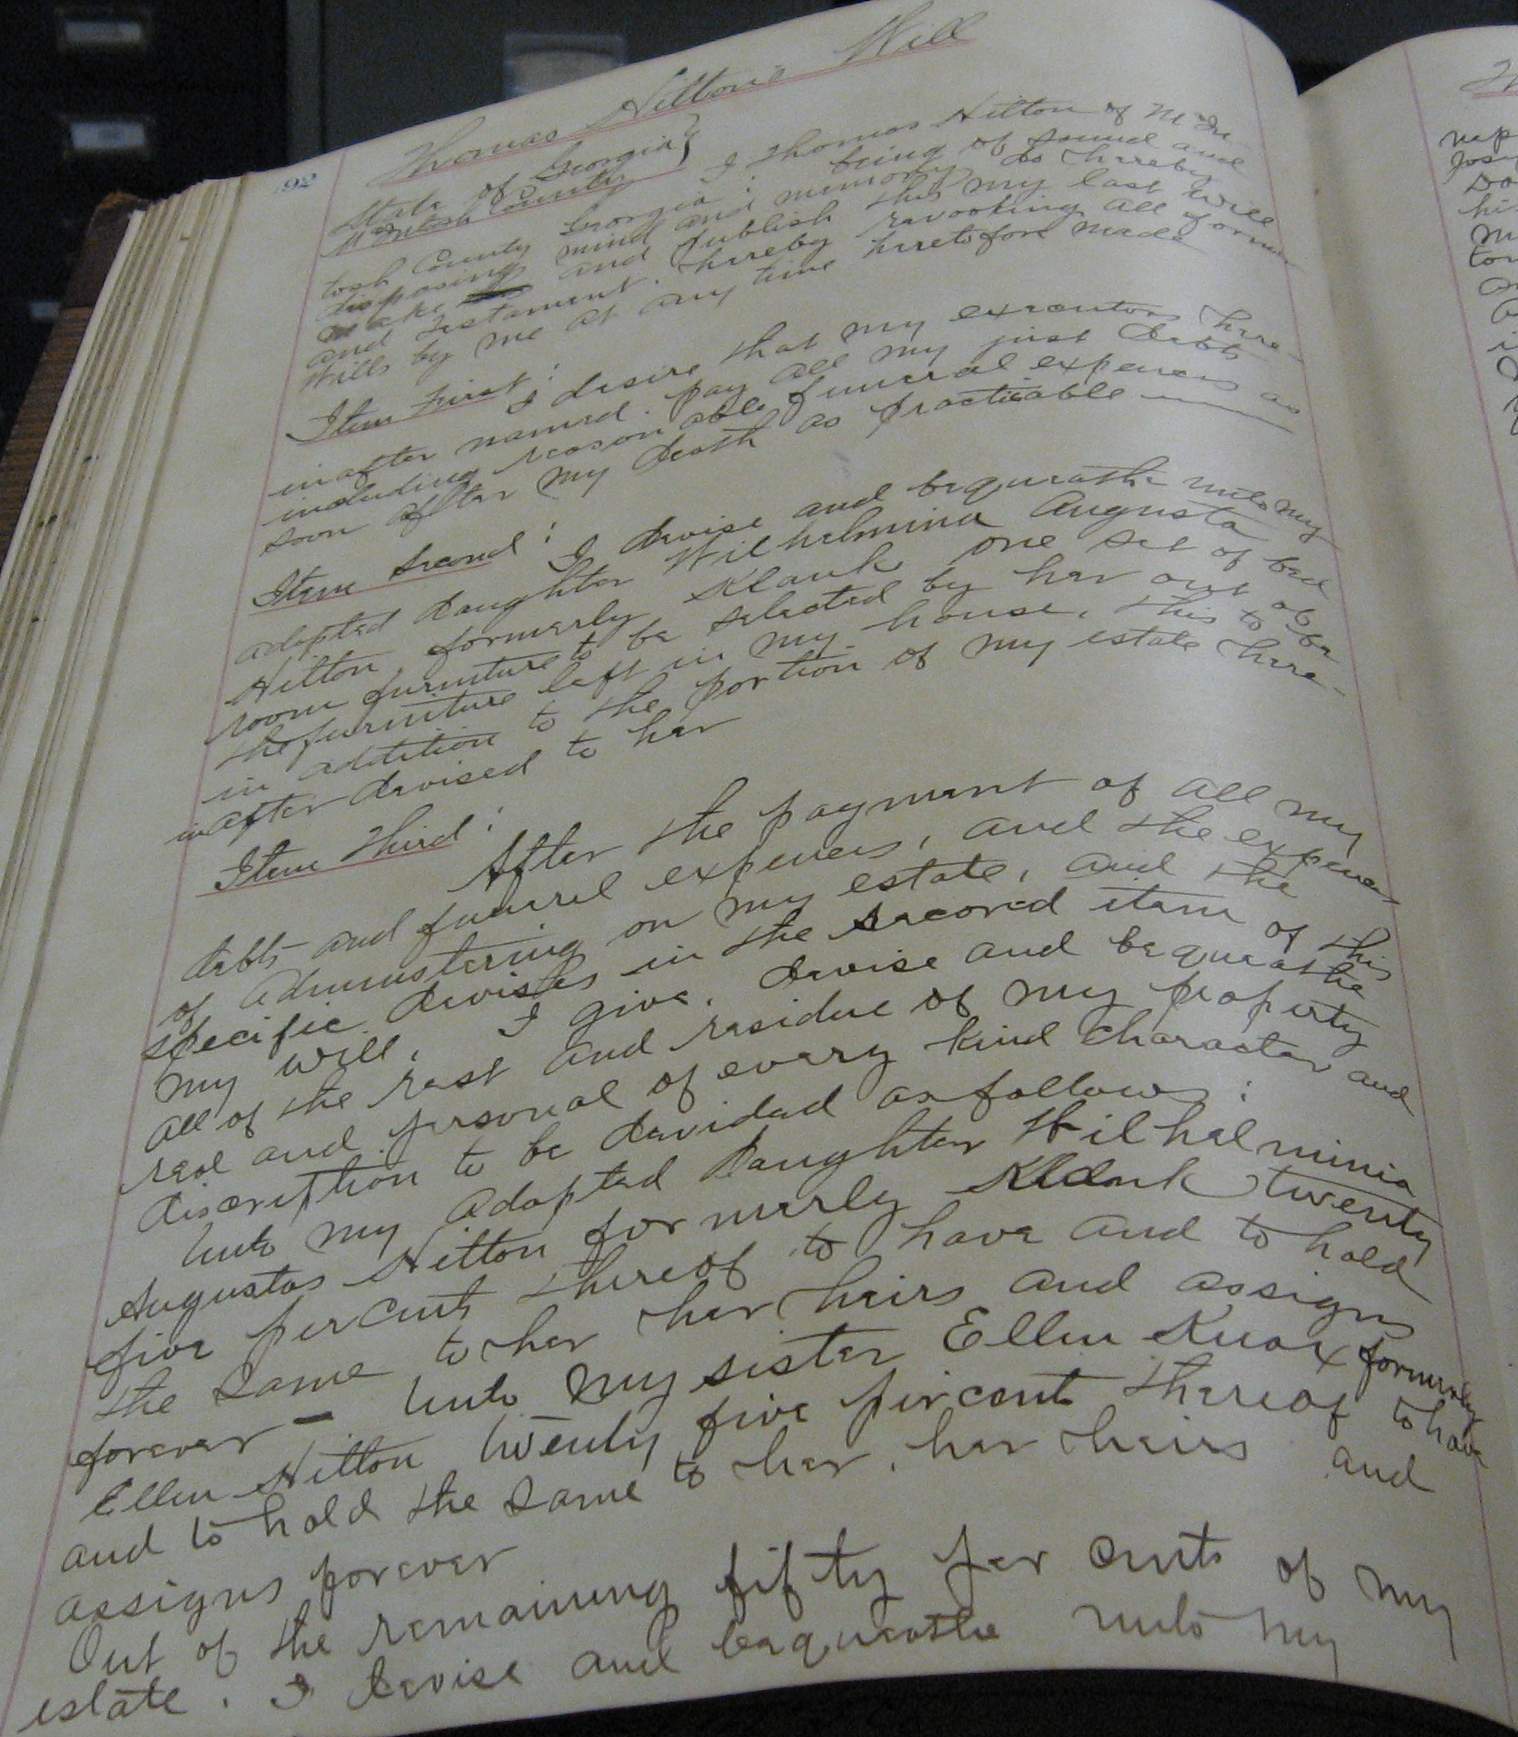 92
Thomas Hilton's Will
State of Georgia }
McIntosh County } I Thomas Hilton of McIn
tosh County Georgia, being of sound and
disposing mind and memory do hereby
make and publish this my last will
and testament. hereby revooking all former
wills by me at any time heretofore made
Item First: I desire that my executors here-
inafter named. pay all my just debts
including reasonable funeral expenses as
soon after my death as practicable
Item Second: I devise and bequeathe unto my
adopted daughter Wilhelmina Augusta
Hilton, formerly Klank one set of bed
room furniture to be selected by her out of
the furniture left in my house, this to be
in addition to the portion of my estate here-
inafter devised to her
Item Third: After the payment of all my
debts and funeral expenses, and the expenses
of administering on my estate, and the
specific devises in the second item of this
my will, I give, devise and bequeathe
all of the rest and residue of my property
real and personal of every kind character and
discription to be devided as follows:
Unto my adopted daughter Wilhelminia
Augustas Hilton formerly Klank twenty
five per cent thereof to have and to hold
the same to her her heirs and assigns
forever — Unto my sister Ellen Knox formerly
Ellen Hilton twenty five per cent thereof to have
and to hold the same to her, her heirs and
assigns forever
Out of the remaining fifty per cent of my
estate. I devise and bequeathe unto my